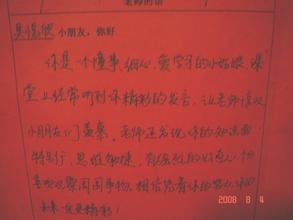 老师的话
小朋友，你好
你是一个懂事、细心、爱学习的小姑娘，课
堂上经常听到你精彩的发言，让老师喜欢
小朋友们羡慕。老师还发现你的知识面
特别广，思维敏捷，
周围事物，相信凭着你的努力，你的
未来会更精彩！
2008 8 4